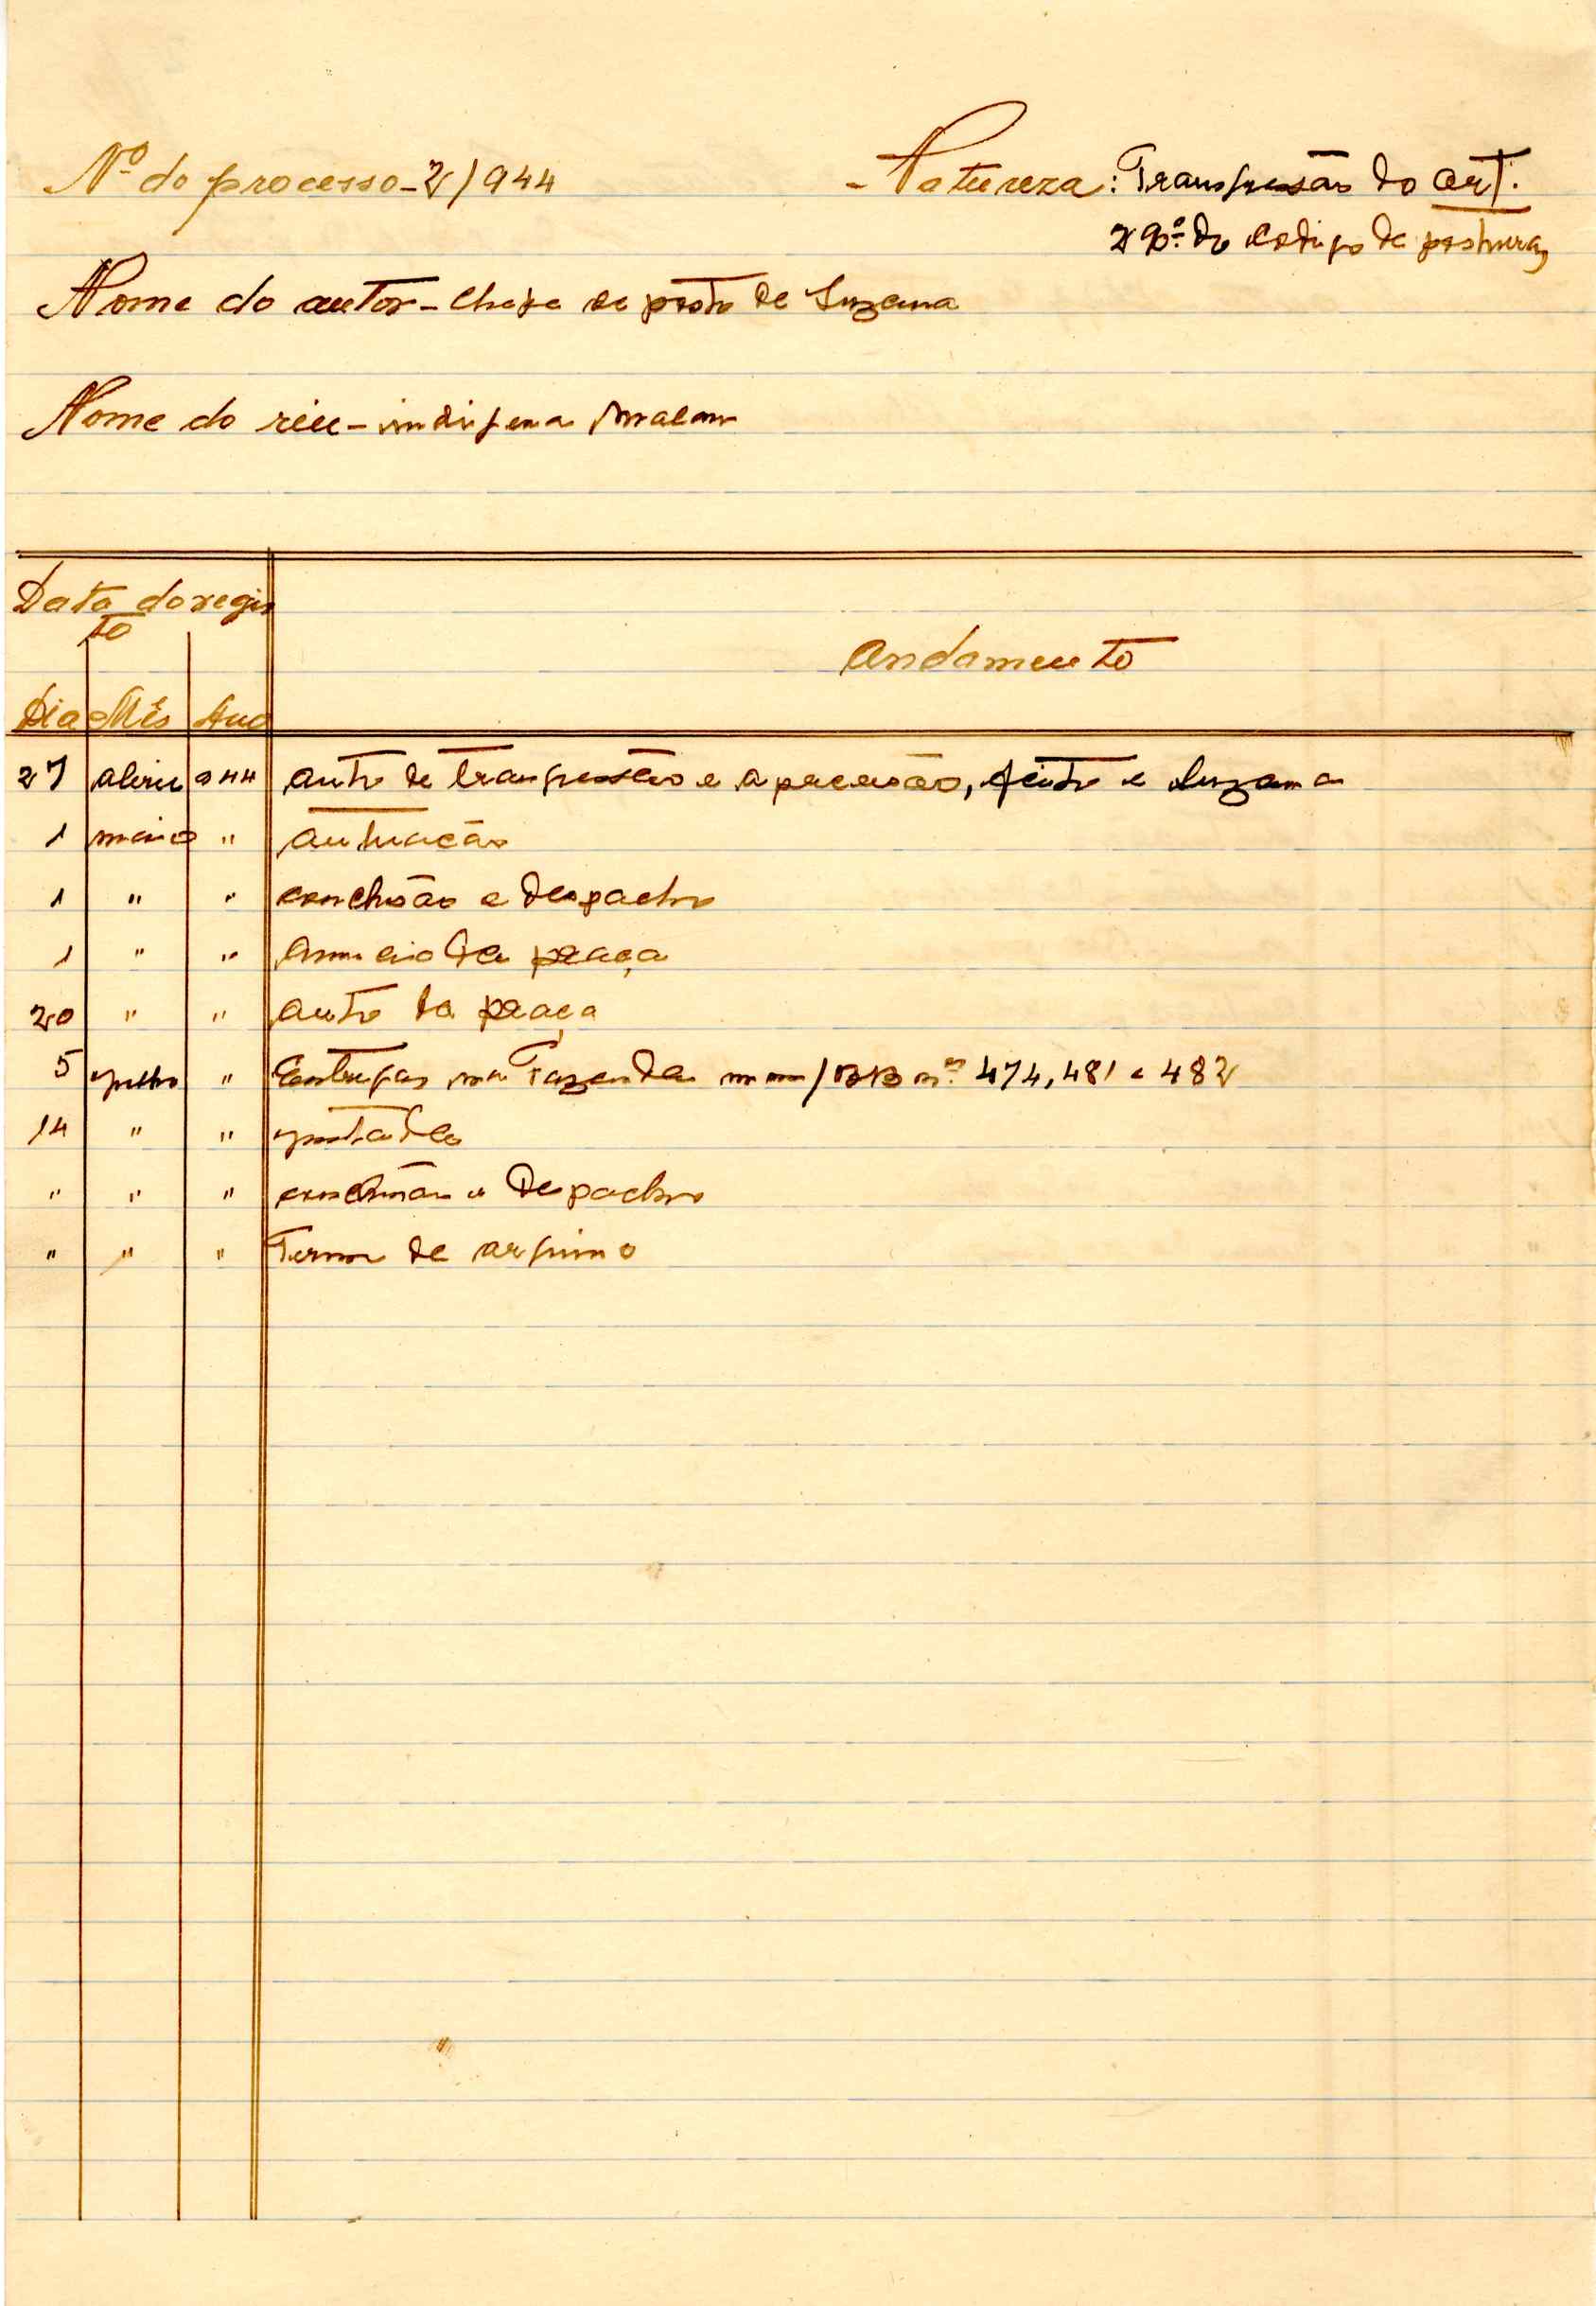 Nº do processo - 2/944
- Natureza: Transgressão do art.
29º do Codigo de posturas
Nome do autor - Chefe de posto de Suzana
Nome do réu - indigena Malam
Data do regis
to
Andamento
Dia Mês Ano
27 abril 944 auto de transgressão e apreensão, feito e Suzana
1 maio " autuação
1 " " conclusão e despacho
1 " " anuncio da praça
20 " " auto da praça
5 julho " Entregas na Fazenda /BB nºs 474, 481 e 482
14 " " juntada
" " " conclusão e Despacho
" " " Termo de arquivo